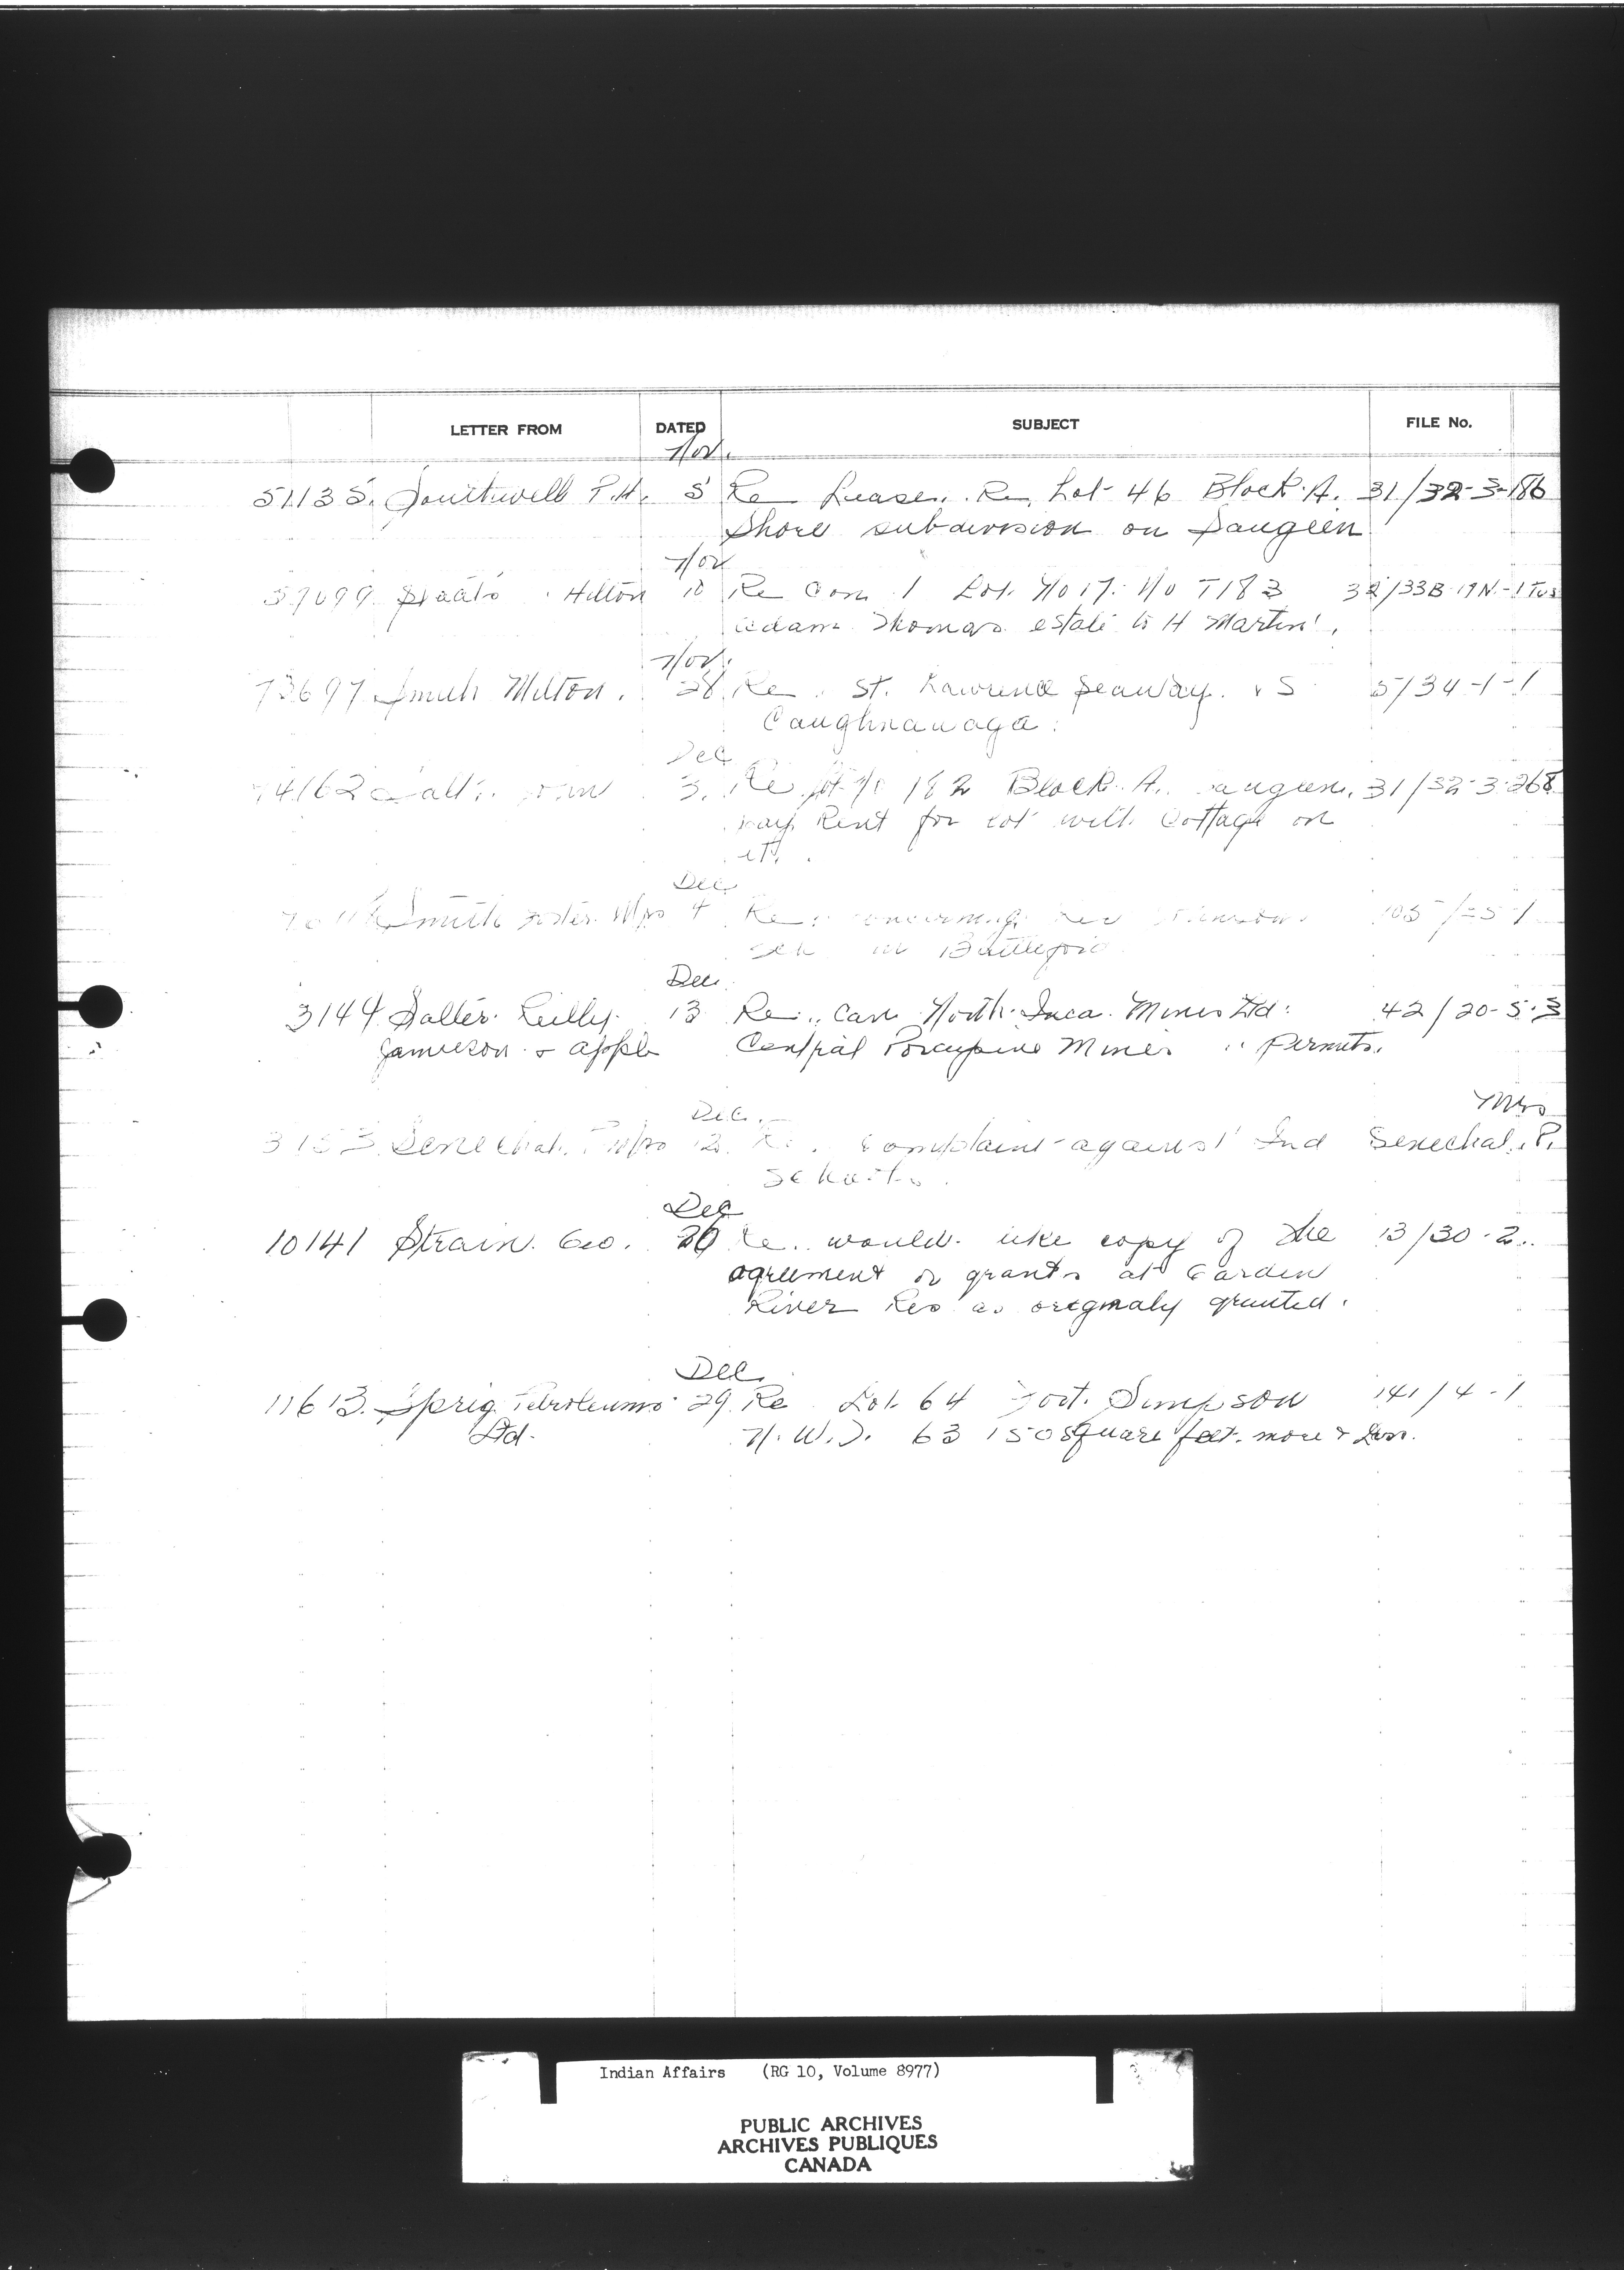 LETTER FROM DATED SUBJECT FILE No.
Nov.
51135. Southwell P.H. 5 Re Lease. Re. Lot 46 Block A. 31/32-3-186
Shore subdivision on Saugeen
Nov
59099 Staats Hilton 10 Re Con 1 Lot No 17. No T183 32/33B-19N-1 Tus
Adam Thomas estate to H Martin.
Nov.
73697 Smith Milton. 28 Re. St. Lawrence Seaway. 5/34-1-1
Caughnawaga.
Dec
74162 3. Re 182 Block A. 31/32-3-268
pay Rent for lot with Cottage on
it.
Dec
Smith Foster Mrs 4 Re. concerning
in
Dec.
3144 Salter Reilly. 13 Re.. Can North Inca Mines Ltd. 42/20-5-3
Jamieson & Apple Central Porcupine Mines Permits.
Dec. Mrs
3153 Senechal. P Mrs 12. Re. complaint against Ind Senechal. P.
Dec
10141 Strain. Geo. 20 Re. would like copy of the 13/30-2.
agreement or grants at Garden
River Res as origmaly granted.
Dec.
11613. Sprig Petroleums 29. Re Lot 64 Fort. Simpson 141/4-1
Ltd. N.W.T. 63 150 square feet. more & Less.
Indian Affairs (RG 10, Volume 8977)
PUBLIC ARCHIVES
ARCHIVES PUBLIQUES
CANADA